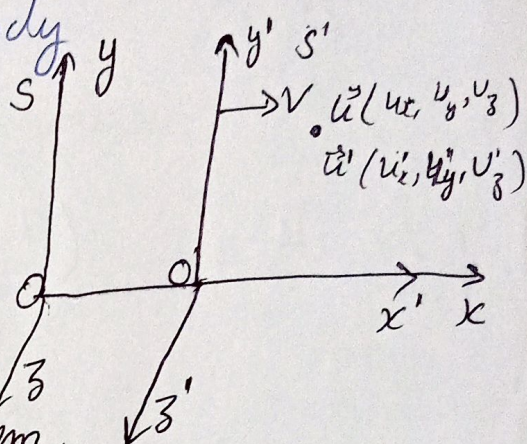 dy
S y y' S'
V ū(uₓ, u_y, u_z)
ū'(u'ₓ, u'_y, u'_z)
O O'
x' x
z z'
m